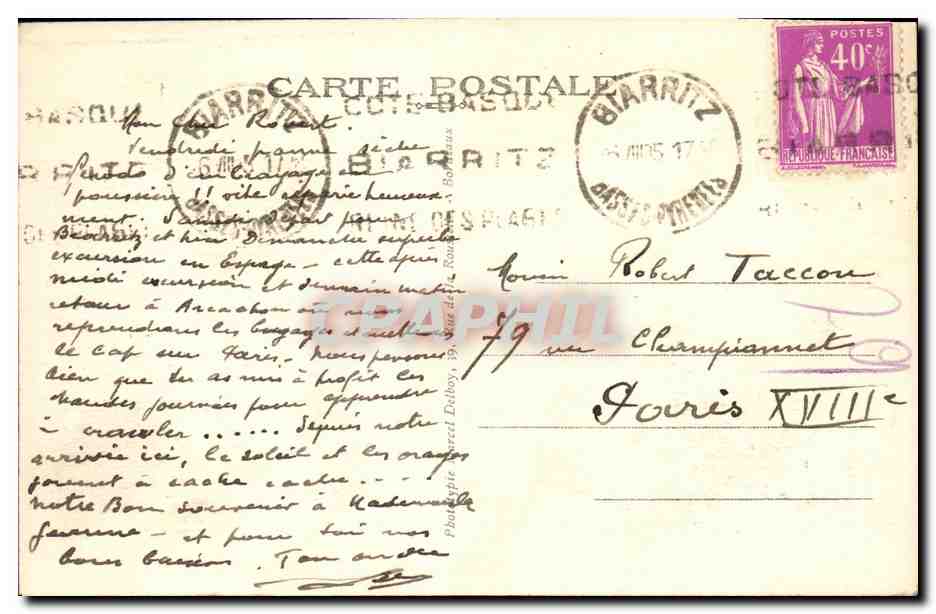 CARTE POSTALE
POSTES
40c
REPUBLIQUE FRANÇAISE
BIARRITZ
BASSES-PYRENEES
BIARRITZ
BASSES-PYRENEES
COTE BASQUE
BIARRITZ
REINE DES PLAGES
Mon Cher Robert.
Vendredi panne sèche
Perdts d'embrayage en
poussière !! vite réparée heureuse
ment. Samedi départ pour
Biarritz et hier Dimanche superbe
excursion en Espagne - cette après
midi excursion et demain matin
retour à Arcachon où nous
reprendrons les bagages et mettrons
le cap sur Paris - Nous pensons
bien que tu as mis à profit les
chaudes journées pour apprendre
à crawler ...... Depuis notre
arrivée ici, le soleil et les orages
jouent à cache cache ....
notre Bon souvenir à Mademoiselle
et pour toi nos
bons baisers. Ton
Phototypie Marcel Delboy, 39, Rue de la Rousselle, Bordeaux
Robert Taccou
79 rue Championnet
Paris XVIIIe
CPAPHIL